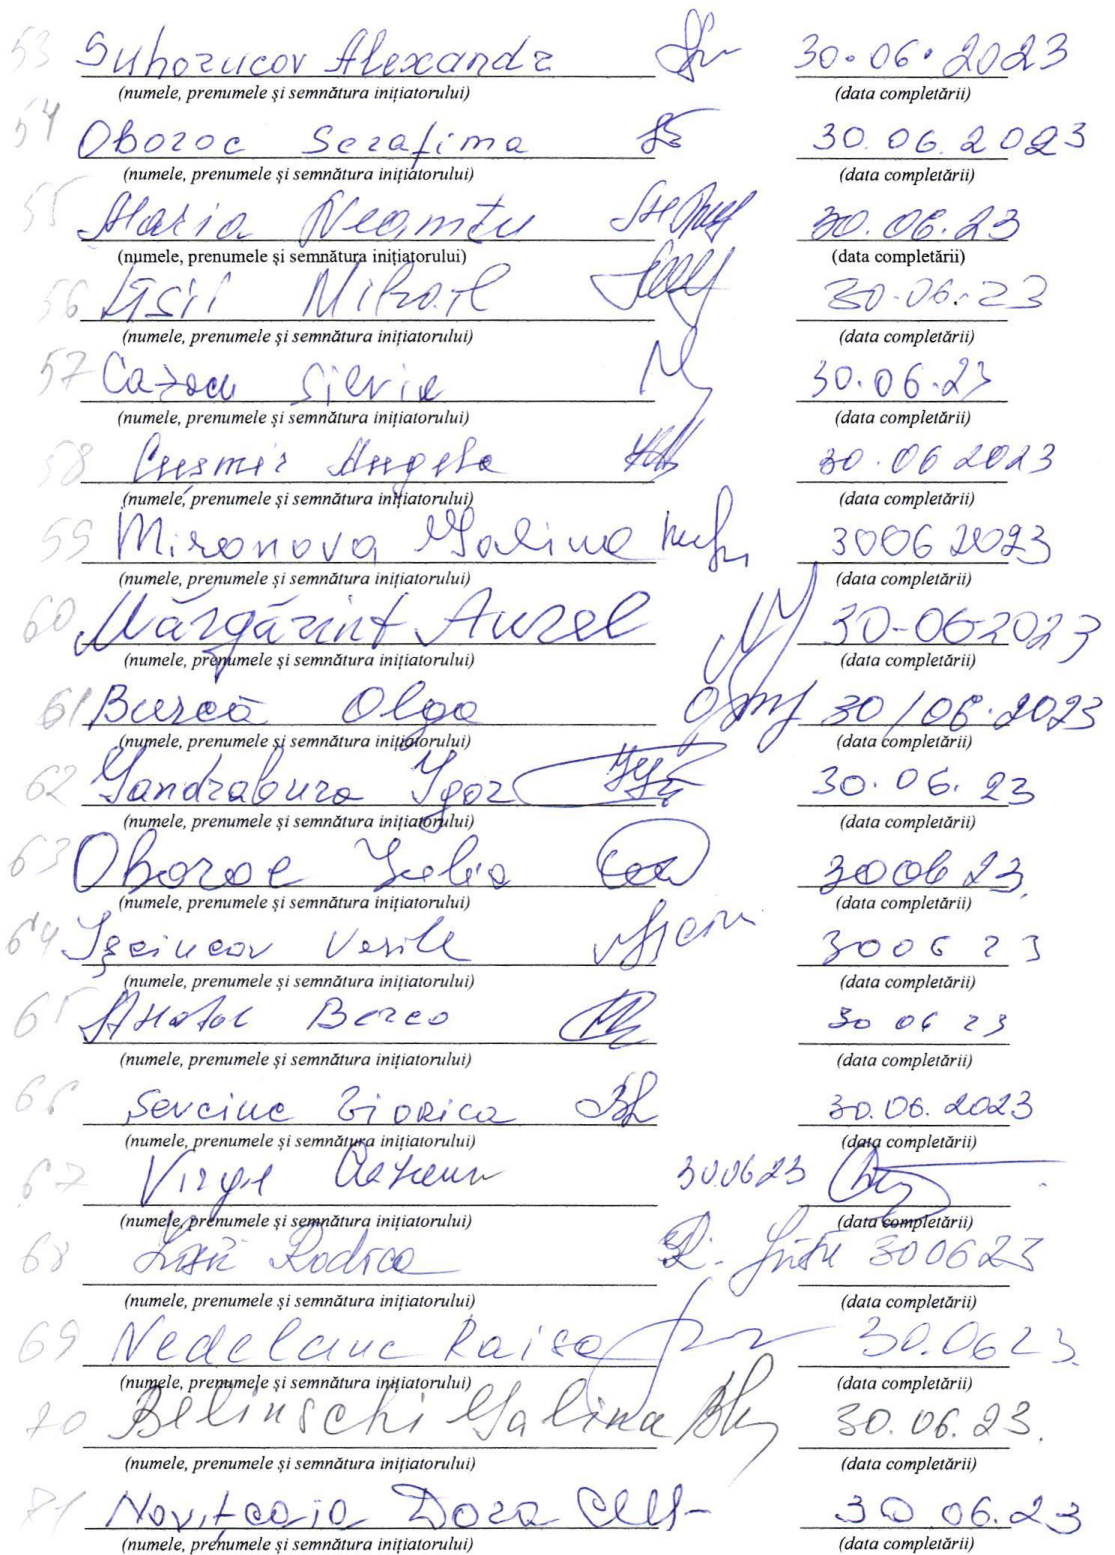 53 Suhorucov Alexandr 30.06.2023
(numele, prenumele și semnătura inițiatorului) (data completării)
54 Oboroc Serafima 30.06.2023
(numele, prenumele și semnătura inițiatorului) (data completării)
55 Maria Neamtu 30.06.23
(numele, prenumele și semnătura inițiatorului) (data completării)
56 Mihail 30.06.23
(numele, prenumele și semnătura inițiatorului) (data completării)
57 Silvia 30.06.23
(numele, prenumele și semnătura inițiatorului) (data completării)
58 Cușmir Angela 30.06 2023
(numele, prenumele și semnătura inițiatorului) (data completării)
59 Mironova Galina 3006 2023
(numele, prenumele și semnătura inițiatorului) (data completării)
60 Mărgărint Aurel 30-06-2023
(numele, prenumele și semnătura inițiatorului) (data completării)
61 Burcă Olga 30/06.2023
(numele, prenumele și semnătura inițiatorului) (data completării)
62 Gandrabura Igor 30.06.23
(numele, prenumele și semnătura inițiatorului) (data completării)
63 Oboroc Iulia 3006 23
(numele, prenumele și semnătura inițiatorului) (data completării)
64 Vasile 3006 23
(numele, prenumele și semnătura inițiatorului) (data completării)
65 Berco 30 06 23
(numele, prenumele și semnătura inițiatorului) (data completării)
66 Sevciuc Viorica 30.06.2023
(numele, prenumele și semnătura inițiatorului) (data completării)
67 Virgil 300623
(numele, prenumele și semnătura inițiatorului) (data completării)
68 Rodica 300623
(numele, prenumele și semnătura inițiatorului) (data completării)
69 Nedelciuc Raisa 30.0623
(numele, prenumele și semnătura inițiatorului) (data completării)
70 Belinschi Galina 30.06.23.
(numele, prenumele și semnătura inițiatorului) (data completării)
71 Novițcaia Dora 30 06.23
(numele, prenumele și semnătura inițiatorului) (data completării)